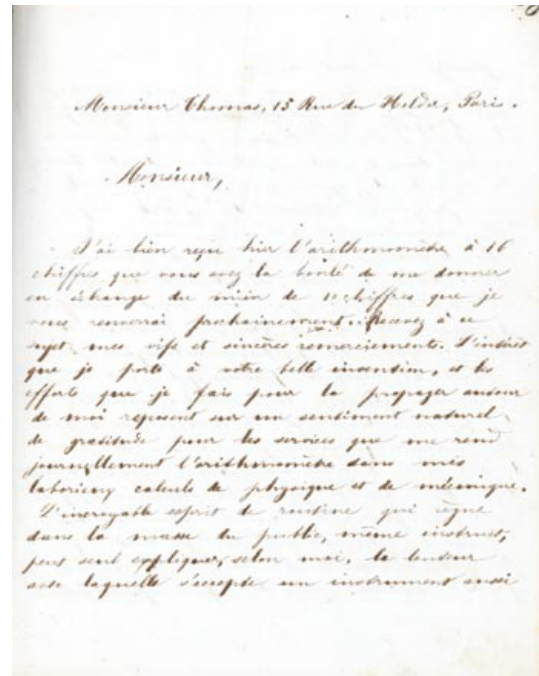 Monsieur Thomas, 13 Rue du Helder, Paris.
Monsieur,
J'ai bien reçu hier l'arithmomètre à 16
chiffres que vous avez la bonté de me donner
en échange du mien de 10 chiffres que je
vous renverrai prochainement. Recevez à ce
sujet mes vifs et sincères remerciements. L'intérêt
que je porte à votre belle invention, et les
efforts que je fais pour la propager autour
de moi reposent sur un sentiment naturel
de gratitude pour les services que me rend
journellement l'arithmomètre dans mes
laborieux calculs de physique et de mécanique.
L'incroyable esprit de routine qui règne
dans la masse du public, même instruit,
peut seul expliquer, selon moi, la lenteur
avec laquelle s'accepte un instrument aussi